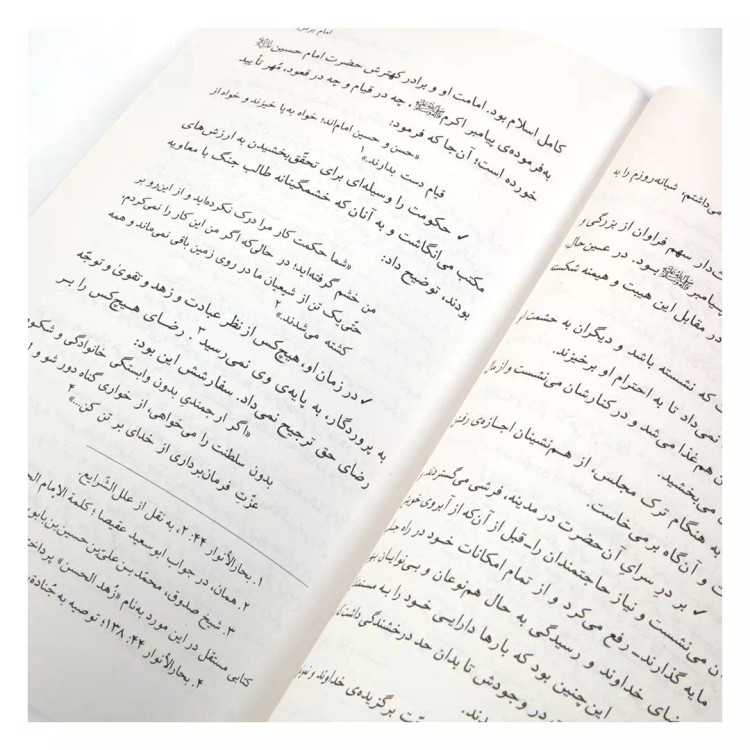 کامل اسلام بود. امامت او و برادر کهترش حضرت امام حسین
به‌فرموده‌ی پیامبر اکرمﷺ، چه در قیام و چه در قعود، مُهر تأیید
خورده است؛ آن‌جا که فرمود:
«حسن و حسین امام‌اند؛ خواه به‌پا خیزند و خواه از
قیام دست بدارند.»۱
✓ حکومت را وسیله‌ای برای تحقّق‌بخشیدن به ارزش‌های
مکتب می‌انگاشت و به آنان که خشمگینانه طالب جنگ با معاویه
بودند، توضیح داد:
«شما حکمت کار مرا درک نکرده‌اید و از این‌رو بر
من خشم گرفته‌اید؛ در حالی‌که اگر من این کار را نمی‌کردم،
حتی یک تن از شیعیان ما در روی زمین باقی نمی‌ماند و همه
کشته می‌شدند.»۲
✓ در زمان او، هیچ‌کس از نظر عبادت و زهد و تقوی و توجّه
به پروردگار، به پایه‌ی وی نمی‌رسید.۳ رضای هیچ‌کس را بر
رضای حق ترجیح نمی‌داد. سفارشش این بود:
«اگر ارجمندی بدون وابستگی خانوادگی و شکوه
بدون سلطنت را می‌خواهی، از خواری گناه دور شو و
عزّتِ فرمان‌برداری از خدای بر تن کن...»۴
۱. بحارالأنوار ۴۴: ۲، به نقل از علل‌الشّرایع.
۲. همان، در جواب ابوسعید عقیصا؛ کلمة الإمام
۳. شیخ صدوق، محمّد بن علیّ‌بن حسین‌بن
کتابی مستقل در این مورد به‌نام «زُهد الحسن» پرداخته
۴. بحارالأنوار ۴۴: ۱۳۸؛ توصیه به جُناده
می‌داشتم، شبانه‌روزم را به
سهم فراوان از بزرگی و
پیامبرﷺ بود. در عین‌حال
در مقابل این هیبت و هیمنه شکسته
که نشسته باشد و دیگران به حشمت او
نمی‌داد تا به احترام او برخیزند.
هم‌غذا می‌شد و در کنارشان می‌نشست و از مال
می‌بخشید.
به هنگام ترک مجلس، از هم‌نشینان اجازه‌ی رفتن
و آنگاه برمی‌خاست.
✓ بر در سرای آن حضرت در مدینه، فرشی می‌گستردند
می‌نشست و نیاز حاجتمندان را ـ قبل از آن‌که از آبروی خویش
مایه گذارند ـ رفع می‌کرد و از تمام امکانات خود در راه
خداوند و رسیدگی به حال هم‌نوعان و بی‌نوایان
این چنین بود که بارها دارایی خود را به
در وجودش تا بدان حد درخشندگی داشت که
برگزیده‌ی خداوند و